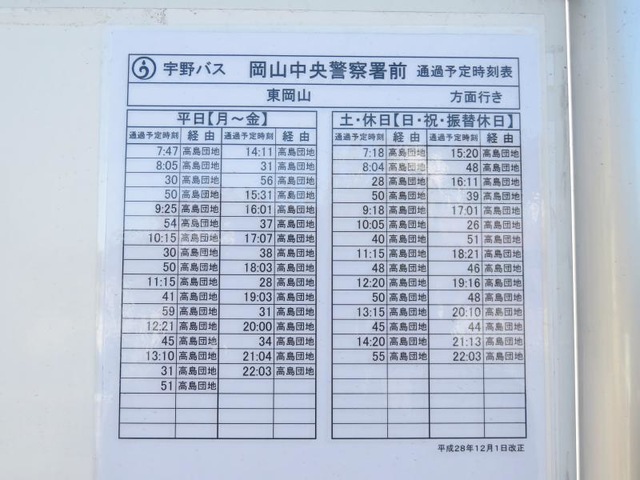 宇野バス 岡山中央警察署前 通過予定時刻表
東岡山 方面行き
平日【月～金】 土・休日【日・祝・振替休日】
通過予定時刻 経由 通過予定時刻 経由 通過予定時刻 経由 通過予定時刻 経由
7:47 高島団地 14:11 高島団地 7:18 高島団地 15:20 高島団地
8:05 高島団地 31 高島団地 8:04 高島団地 48 高島団地
30 高島団地 56 高島団地 28 高島団地 16:11 高島団地
50 高島団地 15:31 高島団地 50 高島団地 39 高島団地
9:25 高島団地 16:01 高島団地 9:18 高島団地 17:01 高島団地
54 高島団地 37 高島団地 10:05 高島団地 26 高島団地
10:15 高島団地 17:07 高島団地 40 高島団地 51 高島団地
30 高島団地 38 高島団地 11:15 高島団地 18:21 高島団地
50 高島団地 18:03 高島団地 48 高島団地 46 高島団地
11:15 高島団地 28 高島団地 12:20 高島団地 19:16 高島団地
41 高島団地 19:03 高島団地 50 高島団地 48 高島団地
59 高島団地 31 高島団地 13:15 高島団地 20:10 高島団地
12:21 高島団地 20:00 高島団地 45 高島団地 44 高島団地
45 高島団地 34 高島団地 14:20 高島団地 21:13 高島団地
13:10 高島団地 21:04 高島団地 55 高島団地 22:03 高島団地
31 高島団地 22:03 高島団地
51 高島団地
平成28年12月1日改正